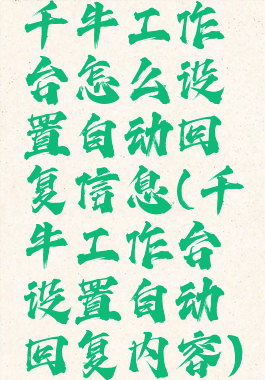 千牛工作
台怎么设
置自动回
复信息(千
牛工作台
设置自动
回复内容)